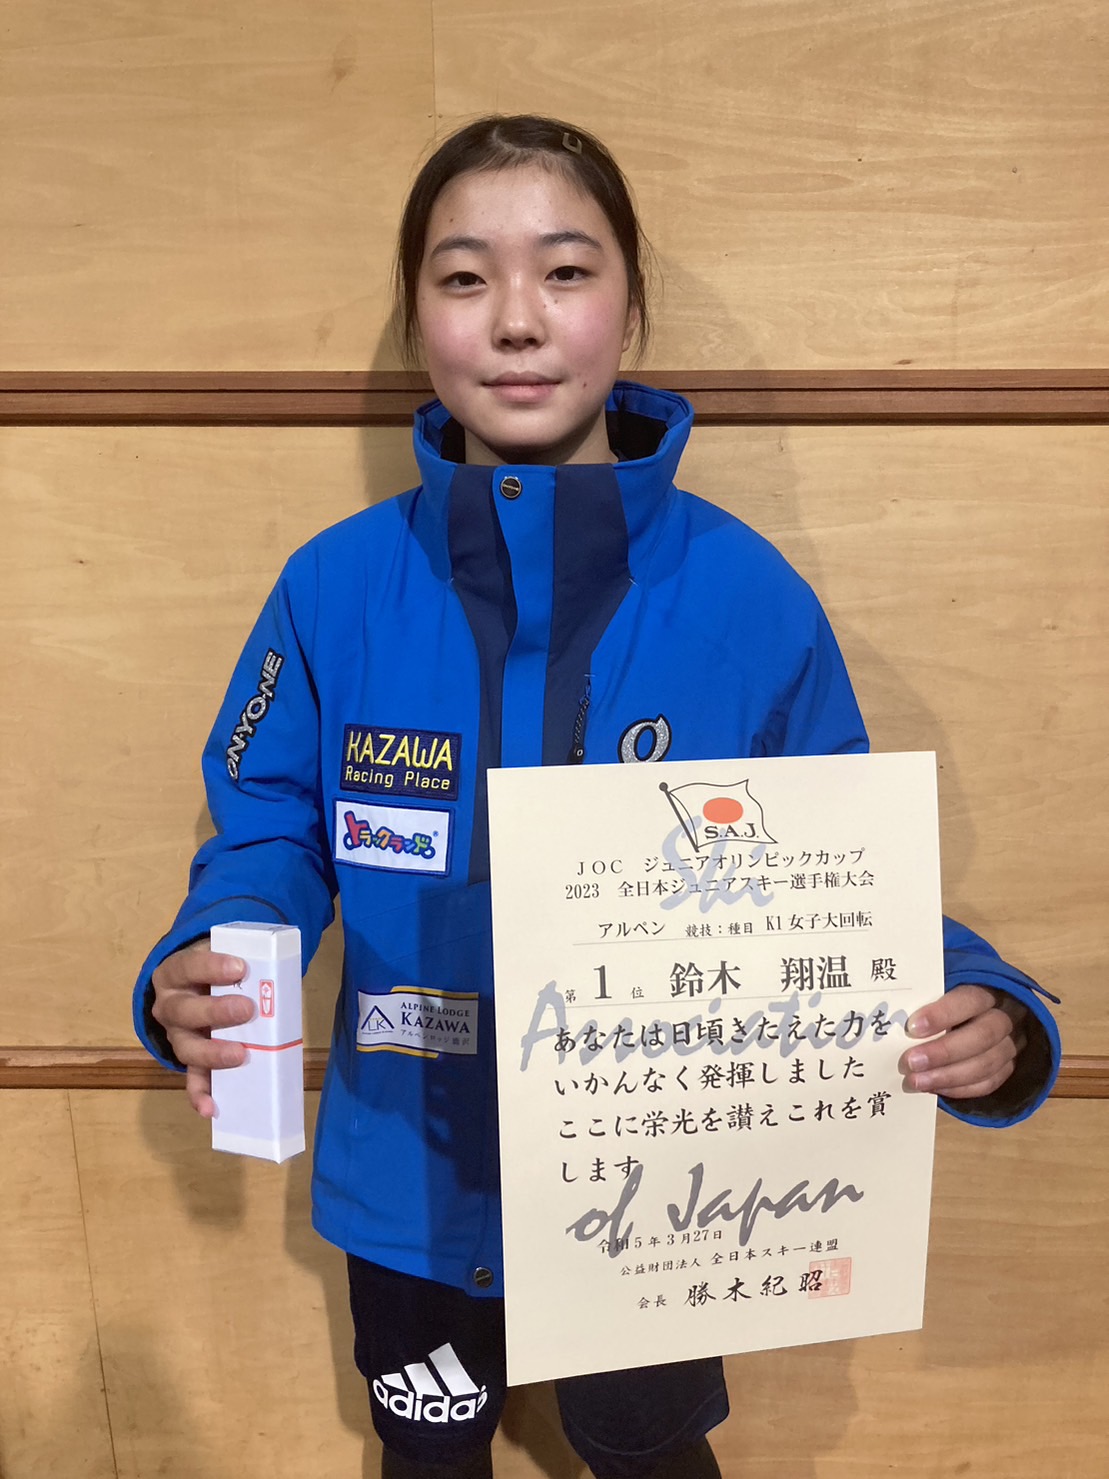 ON・YO・NE
KAZAWA
Racing Place
トラックランド®
ALPINE LODGE
KAZAWA
アルペンロッジ鹿沢
adidas
S.A.J.
Ski
JOC ジュニアオリンピックカップ
2023 全日本ジュニアスキー選手権大会
アルペン 競技:種目 K1 女子大回転
第 1 位 鈴木 翔温 殿
Association
あなたは日頃きたえた力を
いかんなく発揮しました
ここに栄光を讃えこれを賞
します
of Japan
令和5年3月27日
公益財団法人 全日本スキー連盟
会長 勝木紀昭